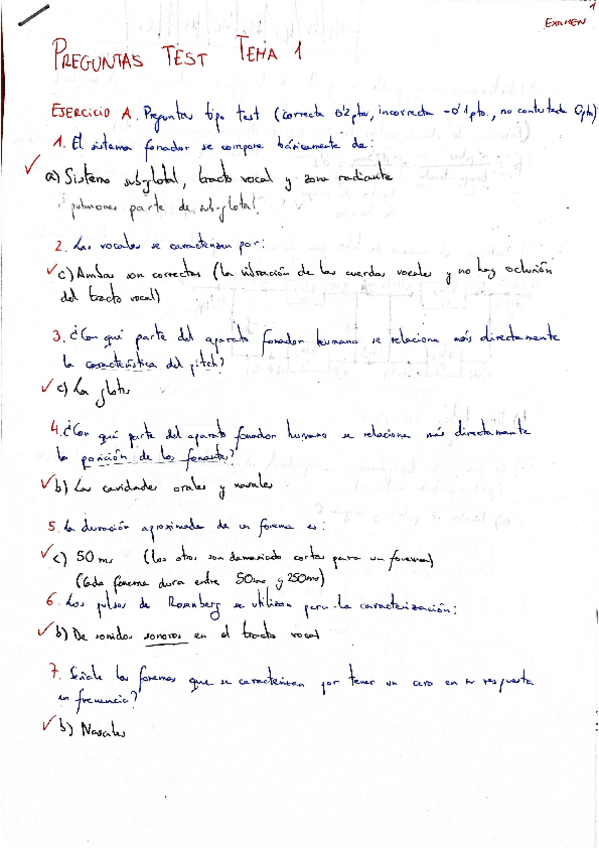 1
EXAMEN
PREGUNTAS TEST TEMA 1
EJERCICIO A. Preguntas tipo test (correcta 0'2 ptos, incorrecta -0'1 pto., no contestada 0pto)
1. El sistema fonador se compone básicamente de:
a) Sistema sub-glotal, tracto vocal y zona radiante
pulmones parte de sub-glotal
2. Las vocales se caracterizan por:
c) Ambas son correctas (la vibración de las cuerdas vocales y no hay oclusión
del tracto vocal)
3. ¿Con qué parte del aparato fonador humano se relaciona más directamente
la característica del pitch?
c) La glotis
4. ¿Con qué parte del aparato fonador humano se relaciona más directamente
la posición de los formantes?
b) Las cavidades orales y nasales
5. La duración aproximada de un fonema es:
c) 50 ms (los otros son demasiado cortos para un fonema)
(Cada fonema dura entre 50ms y 250ms)
6. Los pulsos de Rosenberg se utilizan para la caracterización:
b) De sonidos sonoros en el tracto vocal
7. Señale los fonemas que se caracterizan por tener un cero en su respuesta
en frecuencia?
b) Nasales